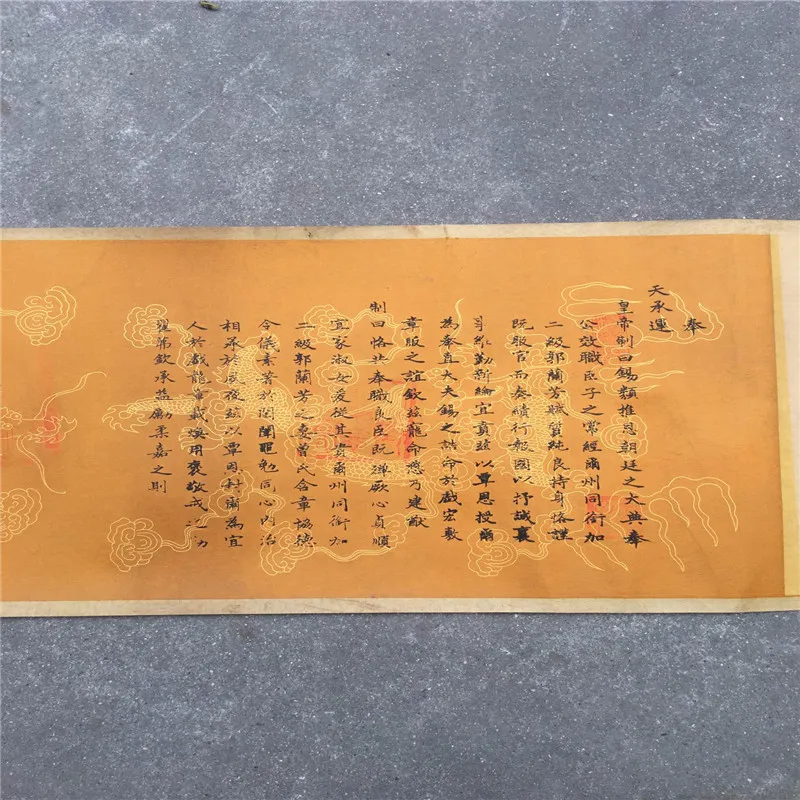 奉
天承運
皇帝制曰錫類推恩朝廷之大典奉
公效職臣子之常經爾州同銜加
二級郭蘭芳賦質純良持身恪謹
既服官而奏績行報國以抒誠襄
勤新綸宜賁玆以覃恩授爾
為奉直大夫錫之誥命於戲宏敷
章服之誼欽玆龍命懋乃建猷
制曰恪共奉職良臣既殫厥心貞順
宜家淑女爰從其貴爾州同銜加
二級郭蘭芳之妻曾氏含章協德
令儀素著於閨闈黽勉同心內治
相承於夙夜玆以覃恩封爾為宜
人於戲龍章載煥用褒敬戒之
翟茀欽承益勵柔嘉之則